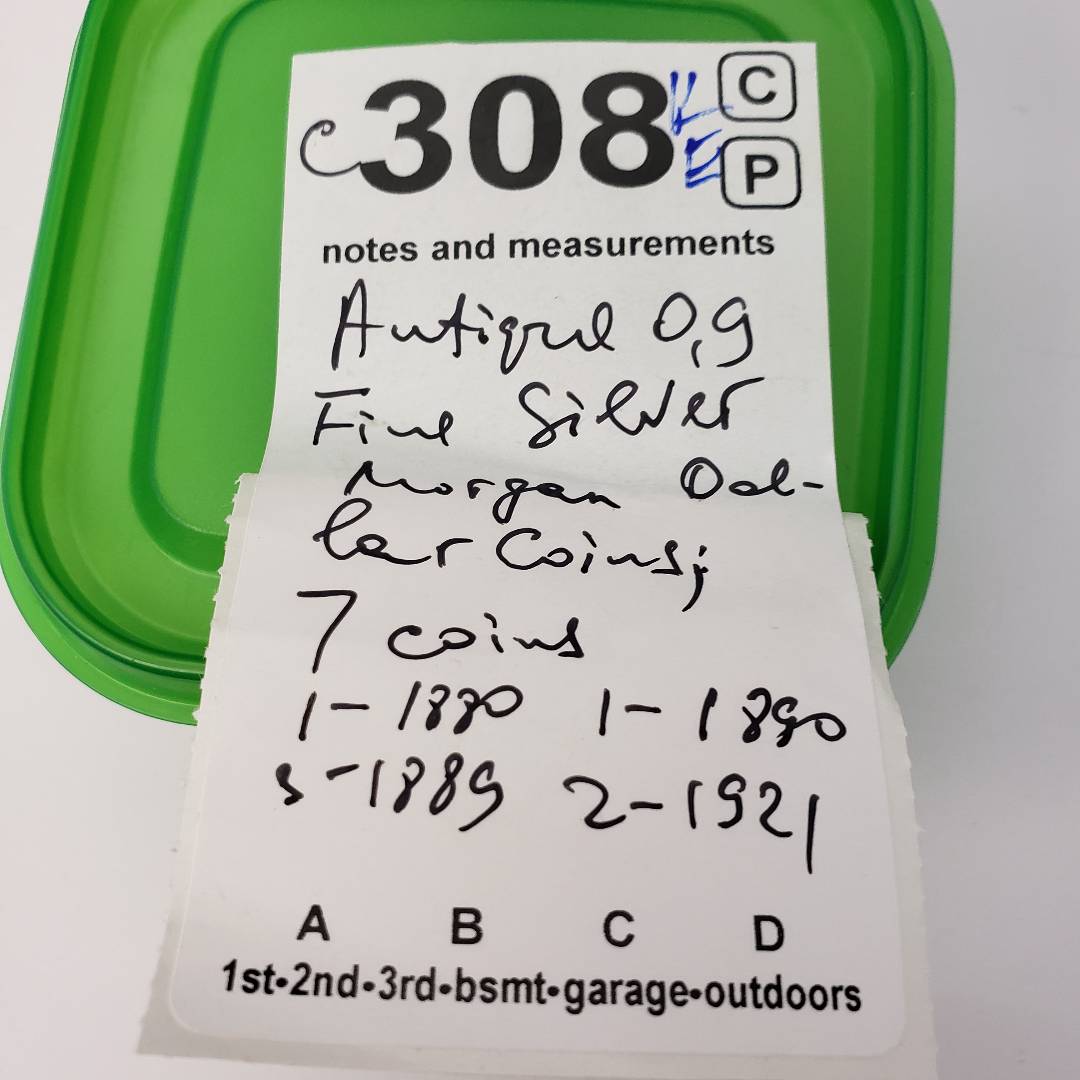 C308 C
P
notes and measurements
Antique 0,9
Fine Silver
Morgan Dol-
lar Coins;
7 coins
1-1880 1-1890
3-1889 2-1921
A B C D
1st•2nd•3rd•bsmt•garage•outdoors